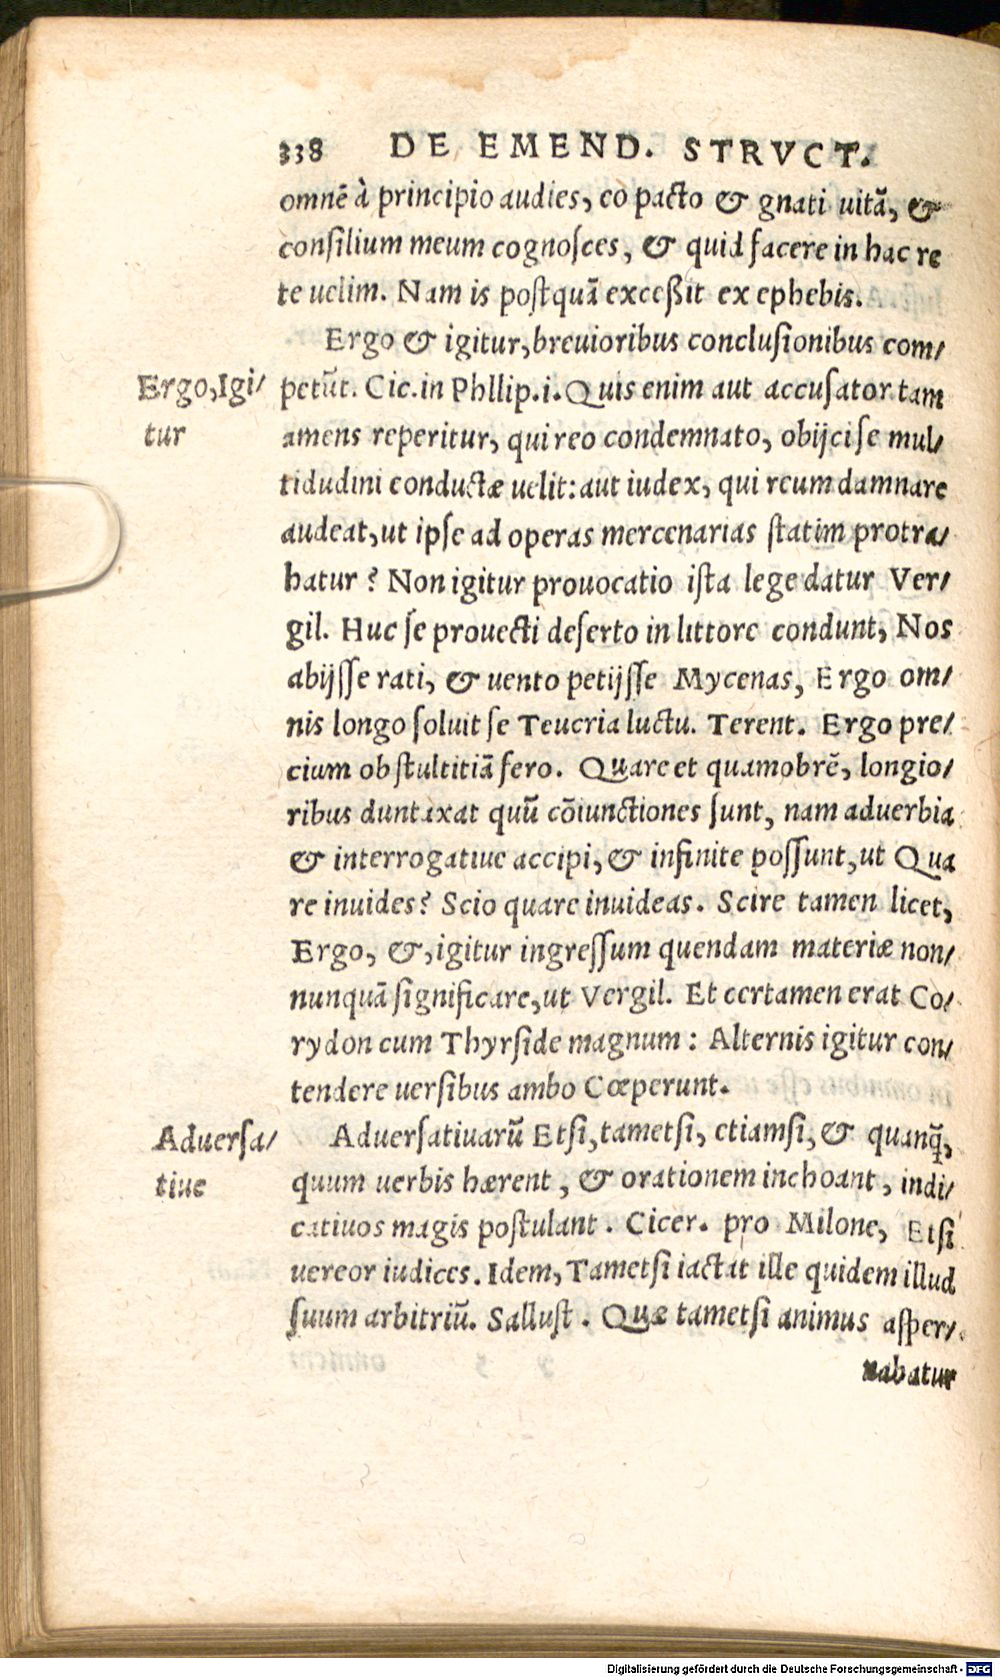 338 DE EMEND. STRVCT.
omnẽ à principio audies, eo pacto & gnati uitã, &
consilium meum cognosces, & quid facere in hac re
te uelim. Nam is postquã exceßit ex ephebis.
Ergo & igitur, breuioribus conclusionibus com/
Ergo, Igi/
tur
petũt. Cic. in Phllip. i. Quis enim aut accusator tam
amens reperitur, qui reo condemnato, obijci se mul/
tidudini conductæ uelit: aut iudex, qui reum damnare
audeat, ut ipse ad operas mercenarias statim protra/
hatur? Non igitur prouocatio ista lege datur Ver/
gil. Huc se prouecti deserto in littore condunt, Nos
abijsse rati, & uento petijsse Mycenas, Ergo om/
nis longo soluit se Teucria luctu. Terent. Ergo pre/
cium ob stultitiã fero. Quare et quamobrẽ, longio/
ribus duntaxat quũ cõiunctiones sunt, nam aduerbia
& interrogatiue accipi, & infinite possunt, ut Qua
re inuides? Scio quare inuideas. Scire tamen licet,
Ergo, &, igitur ingressum quendam materiæ non/
nunquã significare, ut Vergil. Et certamen erat Co/
rydon cum Thyrside magnum: Alternis igitur con/
tendere uersibus ambo Cœperunt.
Aduersa/
tiue
Aduersatiuarũ Etsi, tametsi, etiamsi, & quanq̃,
quum uerbis hærent, & orationem inchoant, indi/
catiuos magis postulant. Cicer. pro Milone, Etsi
uereor iudices. Idem, Tametsi iactat ille quidem illud
suum arbitriũ. Sallust. Quæ tametsi animus asper/
nabatur
Digitalisierung gefördert durch die Deutsche Forschungsgemeinschaft - DFG